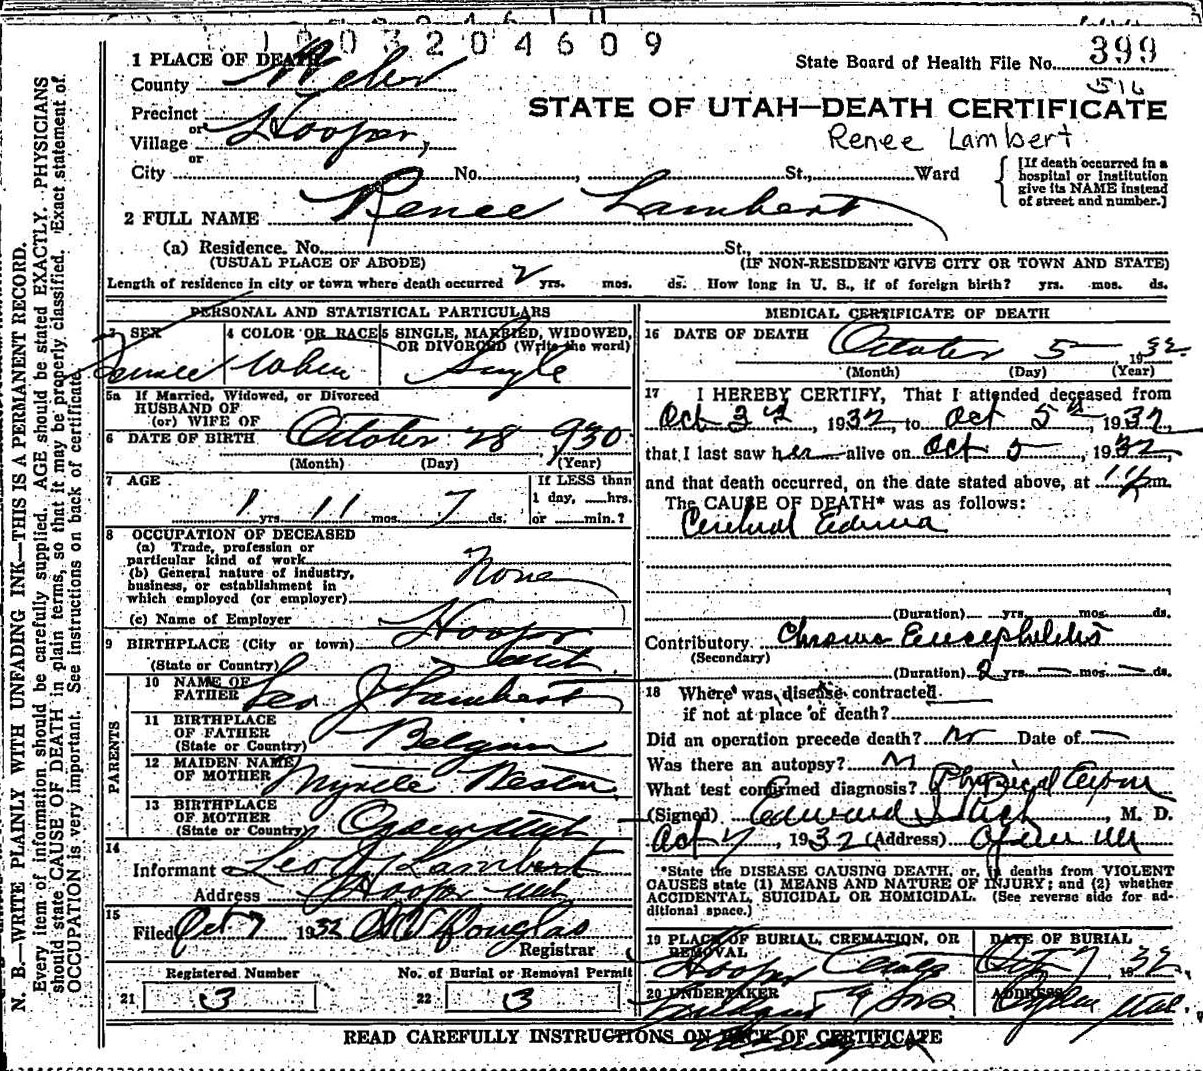 1003204609
1 PLACE OF DEATH
State Board of Health File No. 399
County Weber
516
STATE OF UTAH—DEATH CERTIFICATE
Precinct
or
Village Hooper,
Renee Lambert
or
City No. , St., Ward
[If death occurred in a
hospital or institution
give its NAME instead
of street and number.]
2 FULL NAME Renee Lambert
(a) Residence. No. St.,
(USUAL PLACE OF ABODE) (IF NON-RESIDENT GIVE CITY OR TOWN AND STATE)
Length of residence in city or town where death occurred 2 yrs. mos. ds. How long in U. S., if of foreign birth? yrs. mos. ds.
PERSONAL AND STATISTICAL PARTICULARS
3 SEX
Female
4 COLOR OR RACE
White
5 SINGLE, MARRIED, WIDOWED,
OR DIVORCED (Write the word)
Single
5a If Married, Widowed, or Divorced
HUSBAND OF
(or) WIFE OF
6 DATE OF BIRTH October 28, 1930
(Month) (Day) (Year)
7 AGE
1 yrs. 11 mos. 7 ds.
If LESS than
1 day, hrs.
or min.?
8 OCCUPATION OF DECEASED
(a) Trade, profession or
particular kind of work
(b) General nature of industry,
business, or establishment in
which employed (or employer)
None
(c) Name of Employer
9 BIRTHPLACE (City or town) Hooper
(State or Country) Utah
PARENTS
10 NAME OF
FATHER Leo J Lambert
11 BIRTHPLACE
OF FATHER
(State or Country) Belgium
12 MAIDEN NAME
OF MOTHER Myrtle
13 BIRTHPLACE
OF MOTHER
(State or Country) Ogden Utah
14
Informant Leo J Lambert
Address Hooper Utah
15
Filed Oct 7 1932 Douglas
Registrar
Registered Number No. of Burial or Removal Permit
21 3 22 3
MEDICAL CERTIFICATE OF DEATH
16 DATE OF DEATH October 5 1932
(Month) (Day) (Year)
17 I HEREBY CERTIFY, That I attended deceased from
Oct 3rd, 1932, to Oct 5th, 1932,
that I last saw her alive on Oct 5, 1932,
and that death occurred, on the date stated above, at m.
The CAUSE OF DEATH* was as follows:
Cerebral Edema
(Duration) yrs. mos. ds.
Contributory Chronic Encephilitis
(Secondary)
(Duration) 2 yrs. — mos. — ds.
18 Where was disease contracted
if not at place of death?
Did an operation precede death? No Date of —
Was there an autopsy? No
What test confirmed diagnosis? Physical Exam
(Signed) Edward , M. D.
Oct 7, 1932 (Address) Ogden Ut
*State the DISEASE CAUSING DEATH, or, in deaths from VIOLENT
CAUSES state (1) MEANS AND NATURE OF INJURY; and (2) whether
ACCIDENTAL, SUICIDAL OR HOMICIDAL. (See reverse side for ad-
ditional space.)
19 PLACE OF BURIAL, CREMATION, OR
REMOVAL
Hooper
DATE OF BURIAL
Oct 7, 1932
20 UNDERTAKER
& Sons.
ADDRESS
Ogden Utah.
READ CAREFULLY INSTRUCTIONS ON BACK OF CERTIFICATE
N. B.—WRITE PLAINLY WITH UNFADING INK—THIS IS A PERMANENT RECORD.
Every item of information should be carefully supplied. AGE should be stated EXACTLY. PHYSICIANS
should state CAUSE OF DEATH in plain terms, so that it may be properly classified. Exact statement of
OCCUPATION is very important. See instructions on back of certificate.